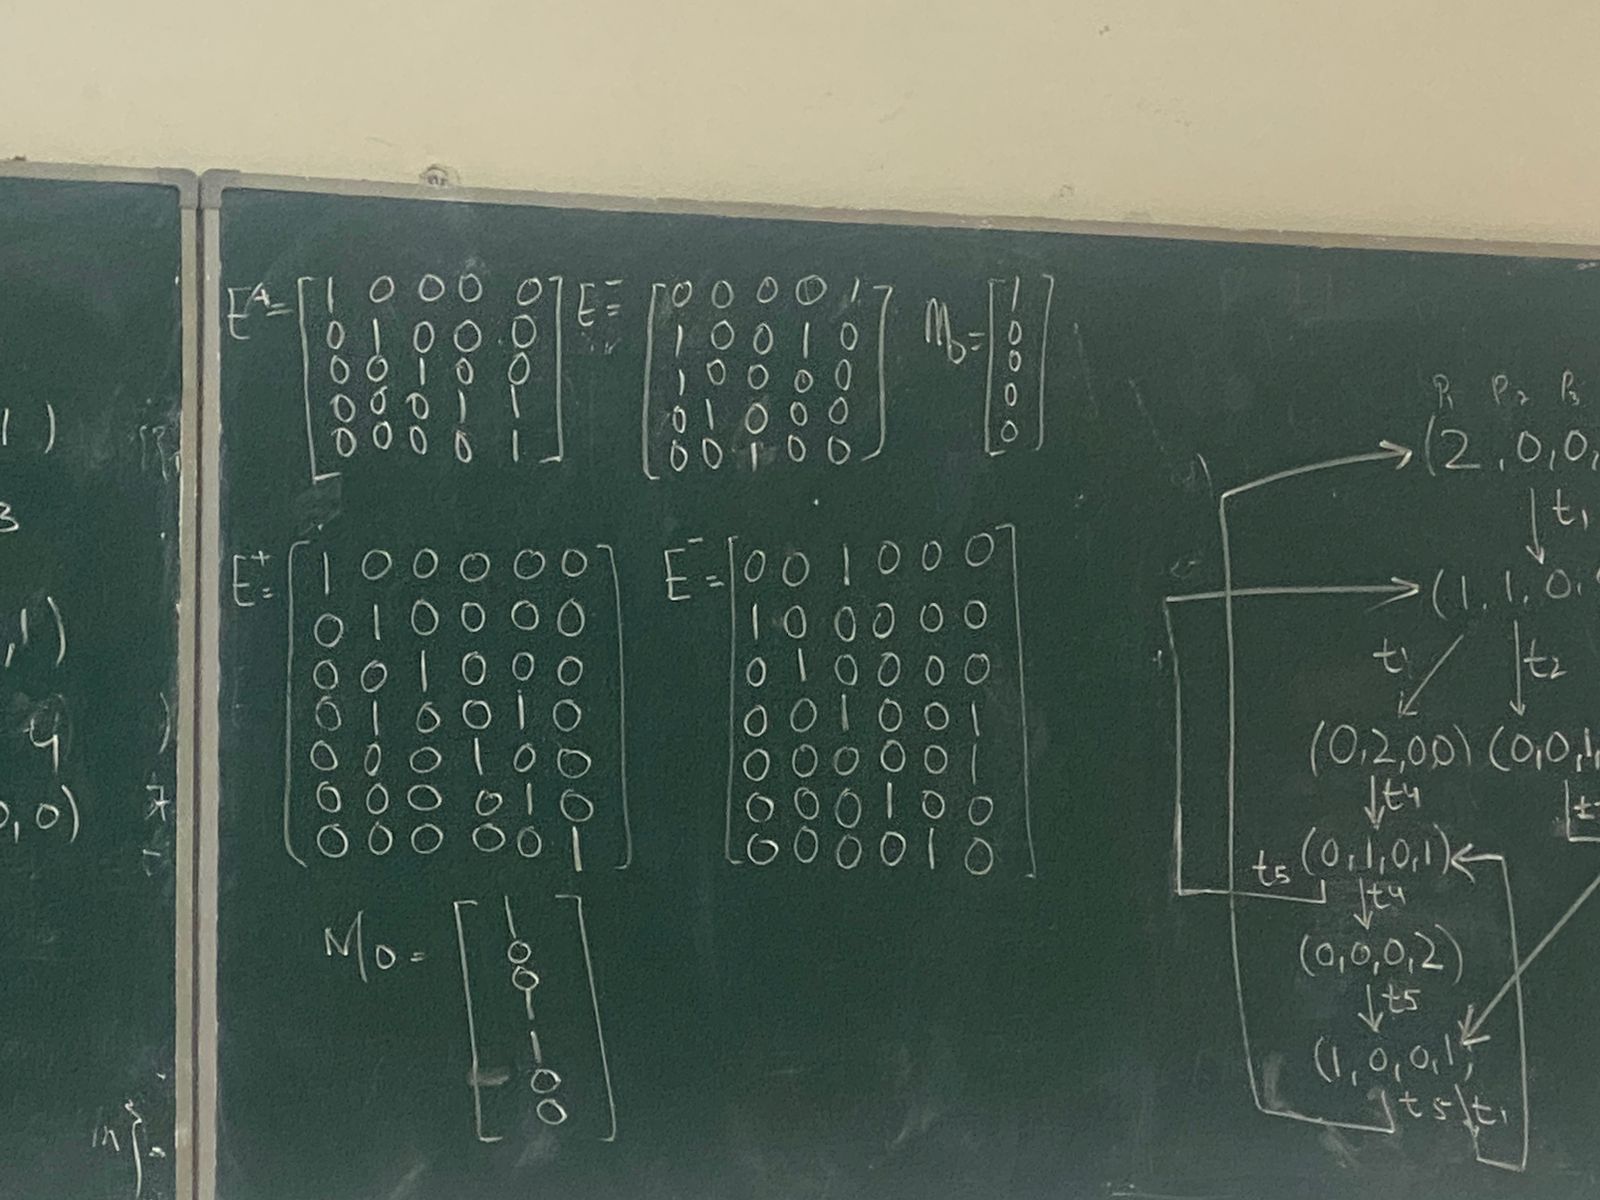 1)
3
,1)
4
0,0)
E^A= [ 1 0 0 0 0 ] E^-= [ 0 0 0 0 1 ] M0= [ 1 ]
0 1 0 0 0   1 0 0 1 0   0
0 0 1 0 0   1 0 0 0 0   0
0 0 0 1 1   0 1 0 0 0   0
0 0 0 0 1   0 0 1 0 0   0
E^+= [ 1 0 0 0 0 0 ] E^-= [ 0 0 1 0 0 0 ]
0 1 0 0 0 0   1 0 0 0 0 0
0 0 1 0 0 0   0 1 0 0 0 0
0 1 0 0 1 0   0 0 1 0 0 1
0 0 0 1 0 0   0 0 0 0 0 1
0 0 0 0 1 0   0 0 0 1 0 0
0 0 0 0 0 1   0 0 0 0 1 0
M0= [ 1 ]
0
0
1
1
0
0
P1 P2 P3
(2,0,0,
t1
(1,1,0,
t1 t2
(0,2,0,0) (0,0,1,
t4
(0,1,0,1)
t5 t4
(0,0,0,2)
t5
(1,0,0,1)
t5 t1